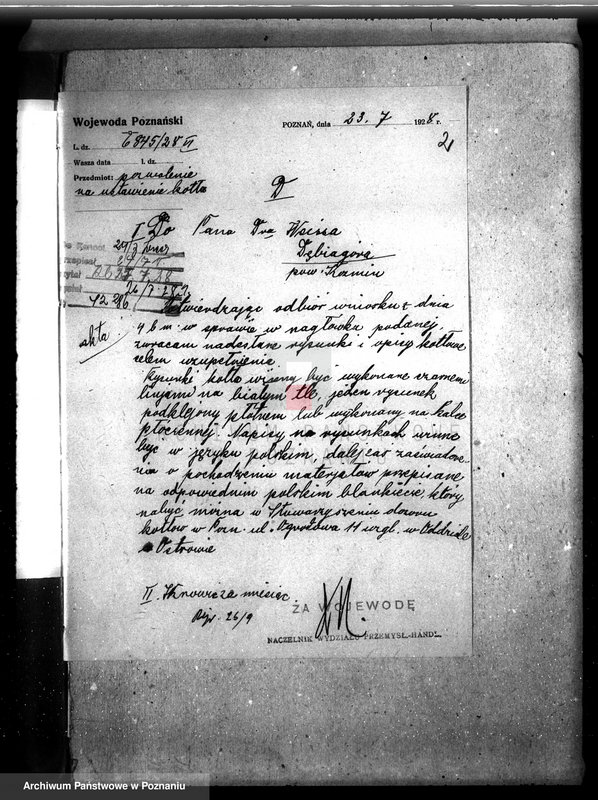 Wojewoda Poznański
POZNAŃ, dnia 23. 7 1928 r.
L. dz. 6845/28 VI
2
Wasza data l. dz.
Przedmiot: pozwolenie
na ustawienie kotła
D
I Do Pana Dra
Dębiagóra
pow.
26/7 28
Potwierdzając odbiór wniosku z dnia
4 b m. w sprawie w nagłówku podanej,
zwracam nadesłane rysunki i opisy kotłowe
celem uzupełnienia
akta
Rysunki kotła winny być wykonane czarnemi
linjami na białym tle, jeden rysunek
podklejony płótnem lub wykonany na kalce
płóciennej. Napisy na rysunkach winne
być w języku polskim, dalej zaś zaświadcze-
nia o pochodzeniu materjałów przepisane
na odpowiednim polskim blankiecie, który
nabyć można w Stowarzyszeniu dozoru
kotłów w Pozn. ul. Ogrodowa 11 wzgl. w Oddziale
w Ostrowie
II. Wznow. za miesiąc.
26/9
ZA WOJEWODĘ
NACZELNIK WYDZIAŁU PRZEMYSŁ.-HANDL.
Archiwum Państwowe w Poznaniu